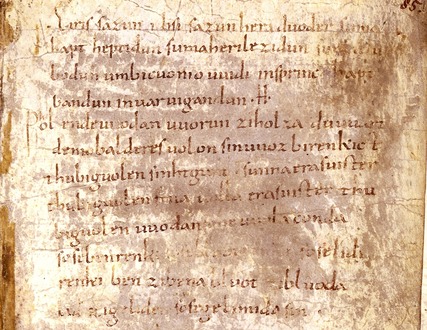 85
Eiris sazun idisi sazunhera duoder suma
hapt heptidun sumaherilezidun sumaclu
bodun umbicuonio uuidi insprinc hapt
bandun inuar uigandun .H.
Pol endeuuodan uuorun ziholza du uuart
demo balderes uolon sinuuoz birenkict
thubiguolen sinhtgunt sunnaerasuister
thubiguolen friia uolla erasuister thu
biguolen uuodan sohe uuola conda
sosebenrenki soselidi
renki ben zibena bluot zibluoda
lid zigeliden sosegelimida sin